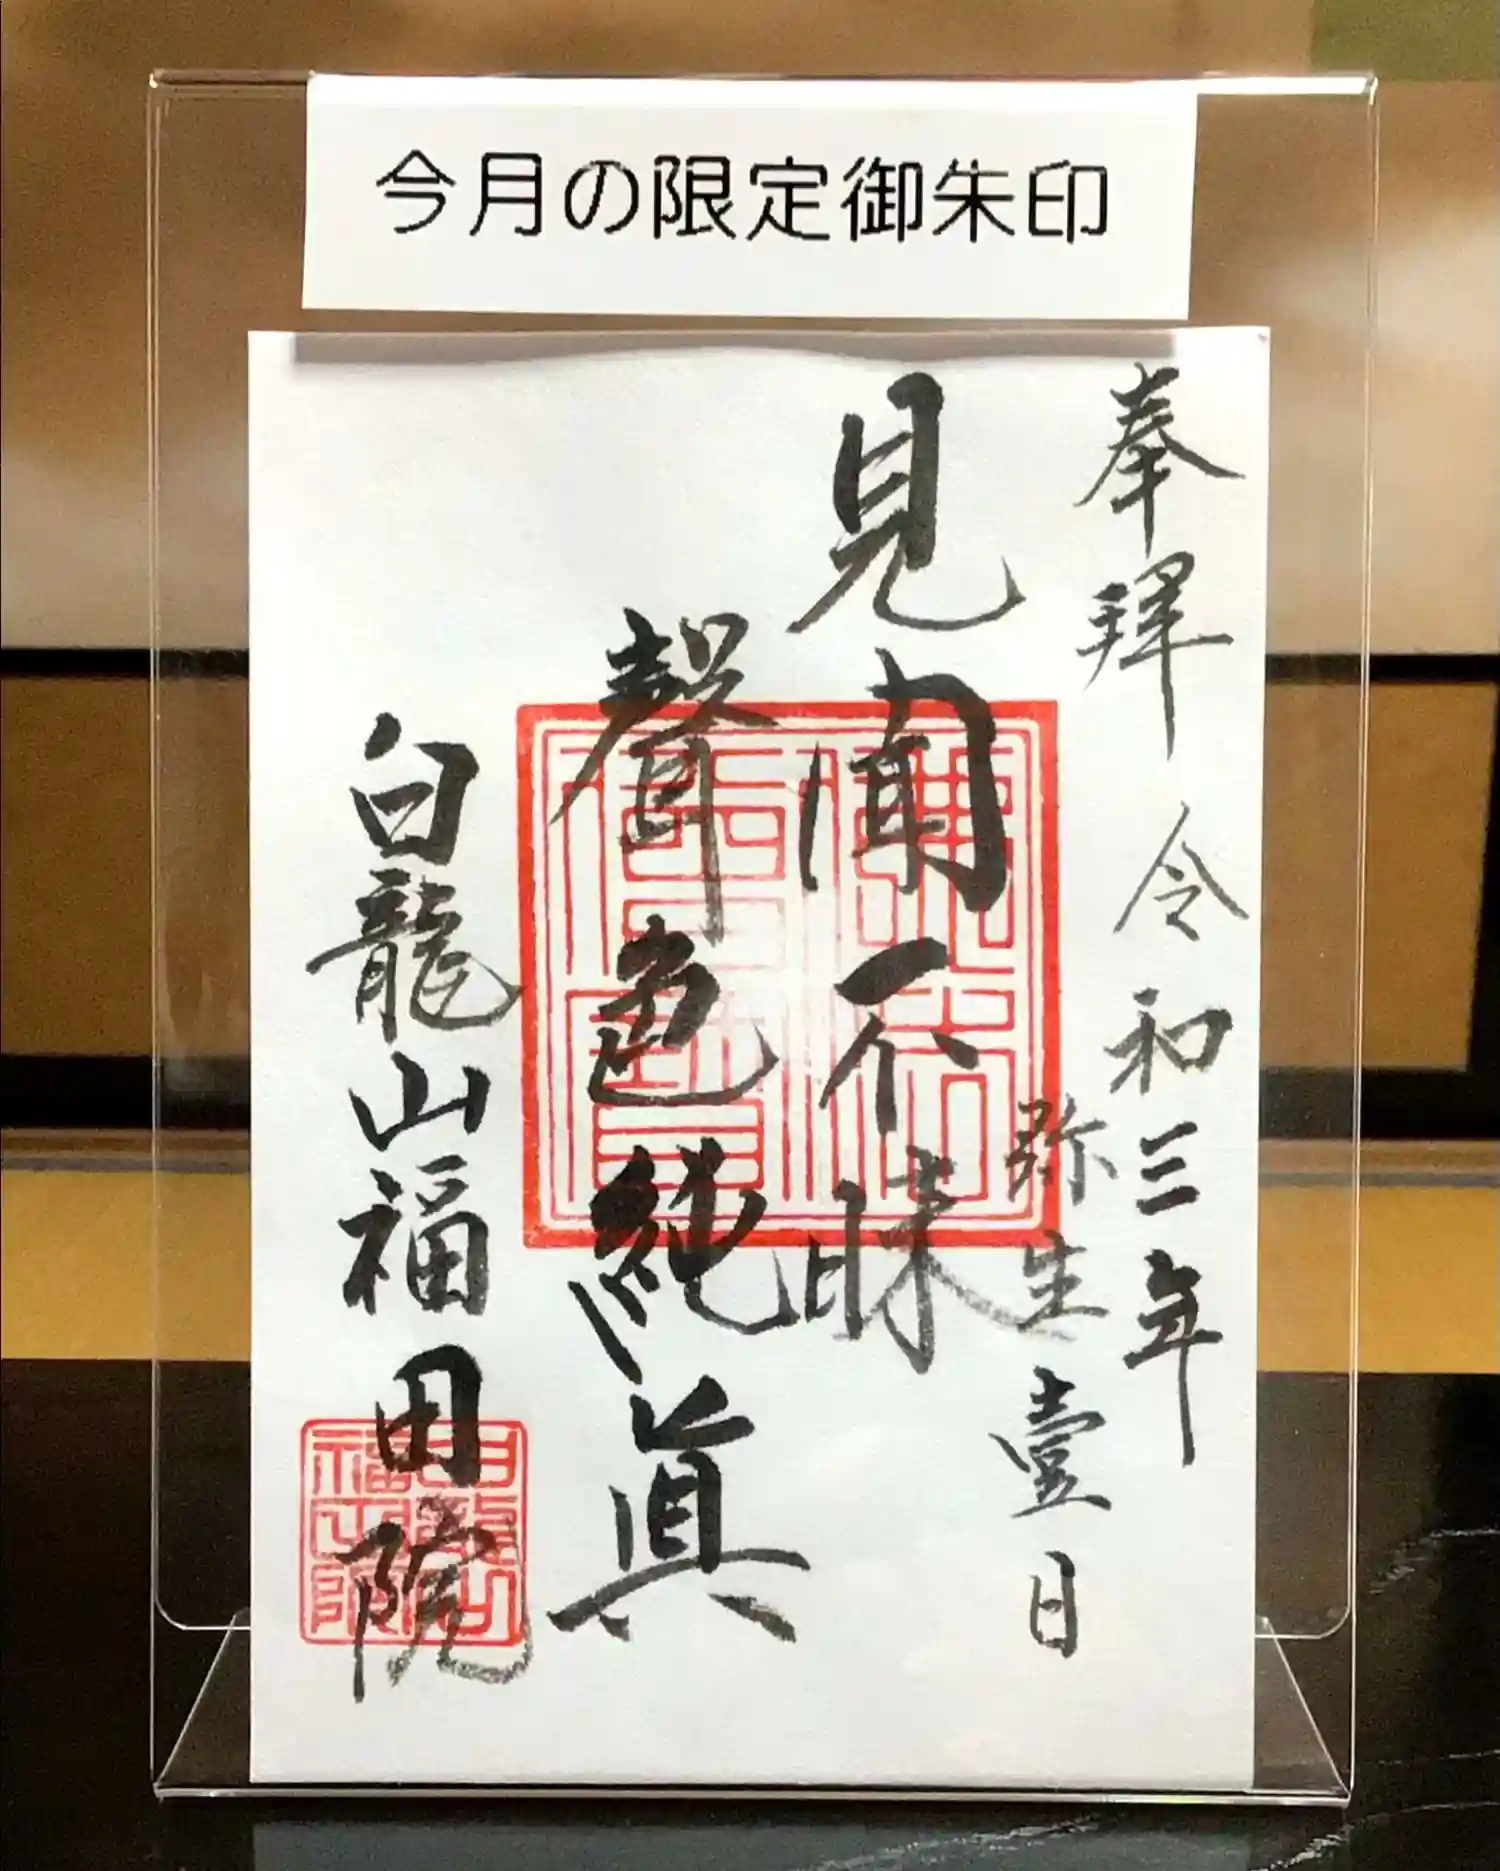 今月の限定御朱印
奉拝 令和三年
弥生壹日
見聞不昧
聲色純真
白龍山福田院